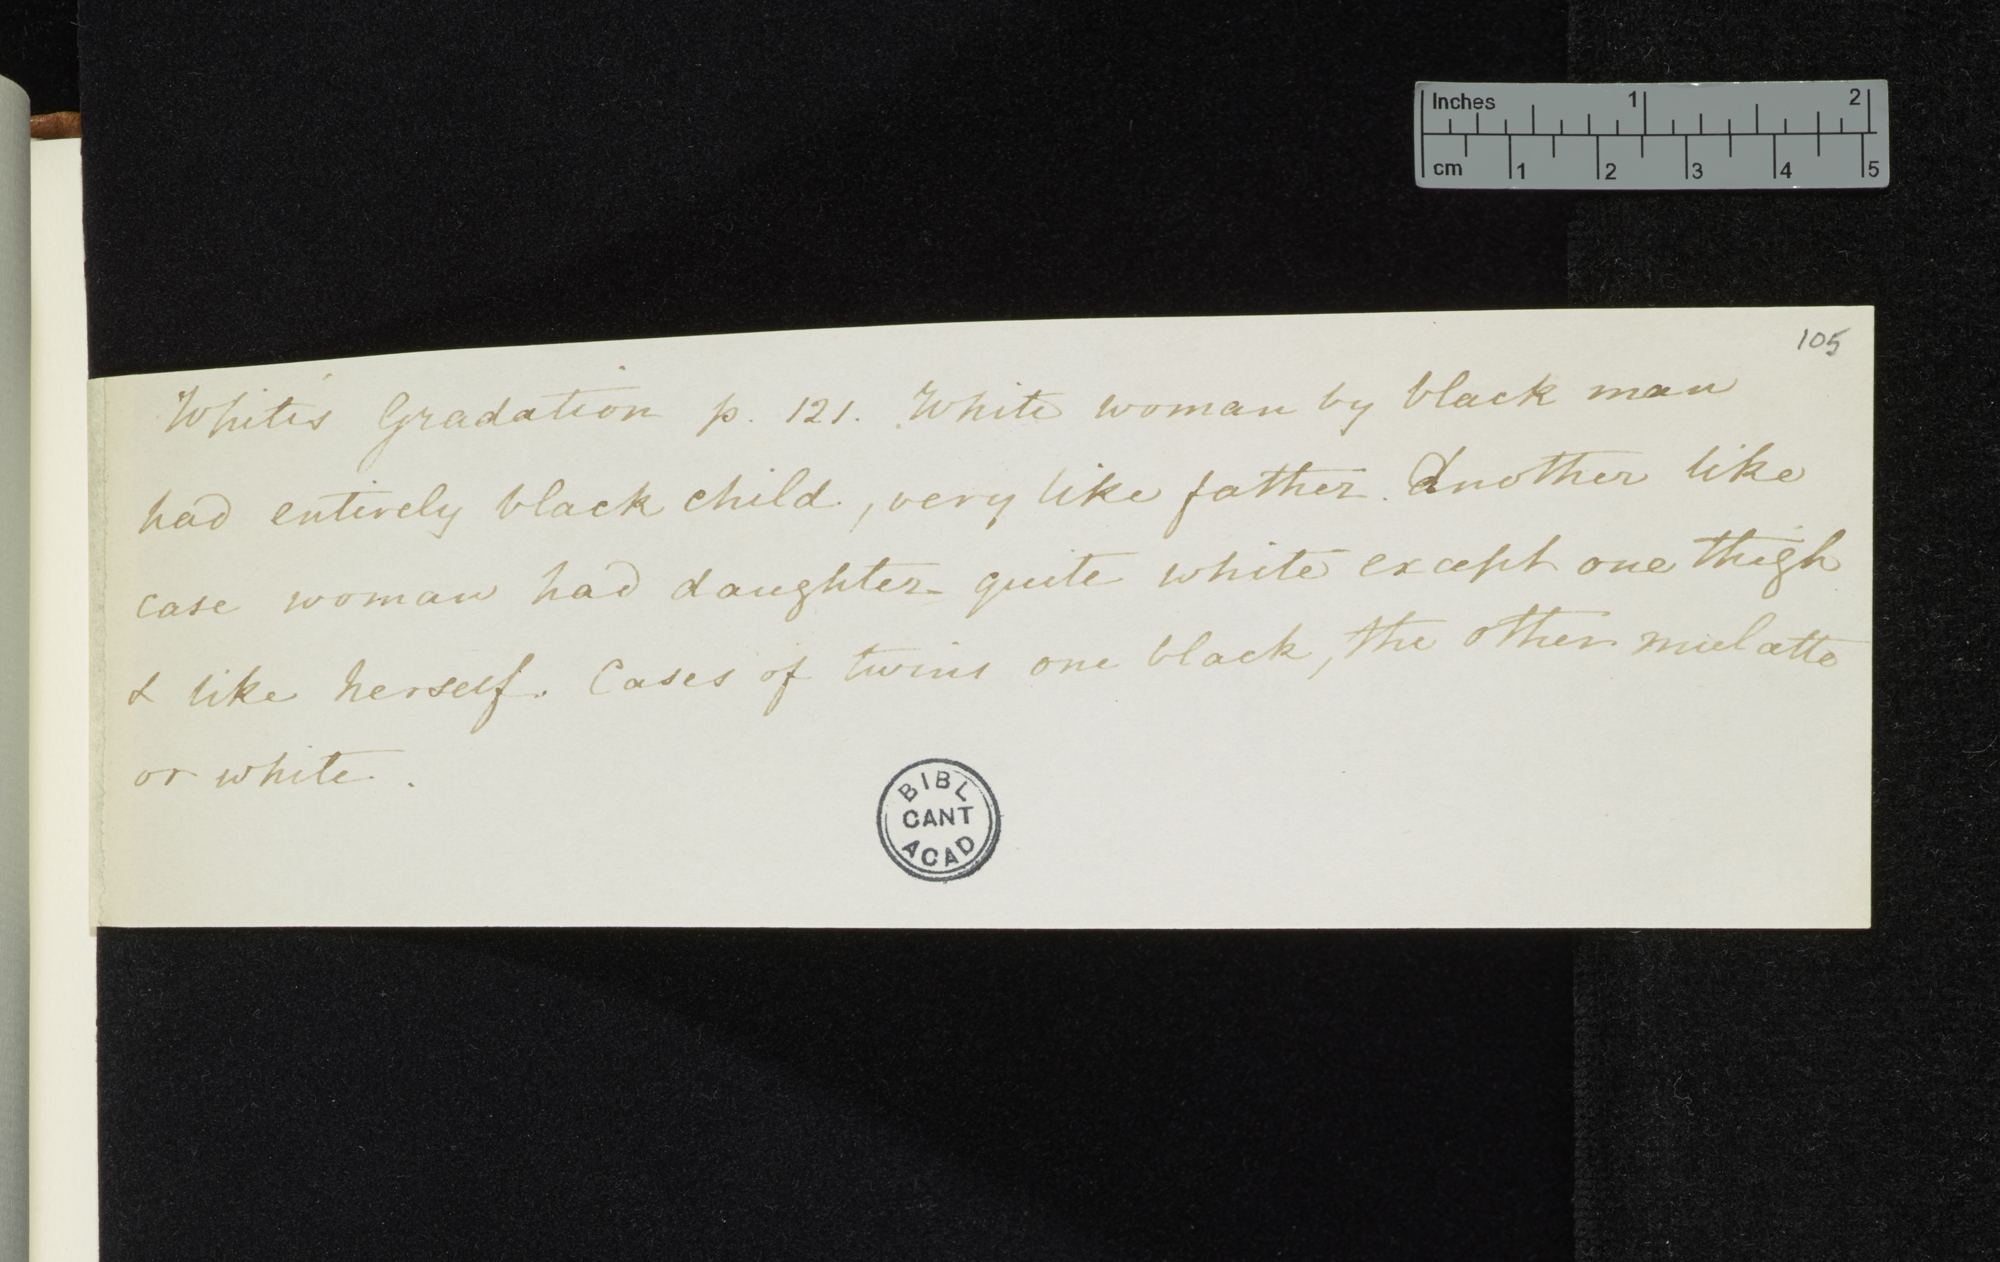 Inches 1 2
cm 1 2 3 4 5
105
White's Gradation p. 121. White woman by black man
had entirely black child, very like father. Another like
case woman had daughter quite white except one thigh
& like herself. Cases of twins one black, the other mulatto
or white.
BIBL
CANT
ACAD